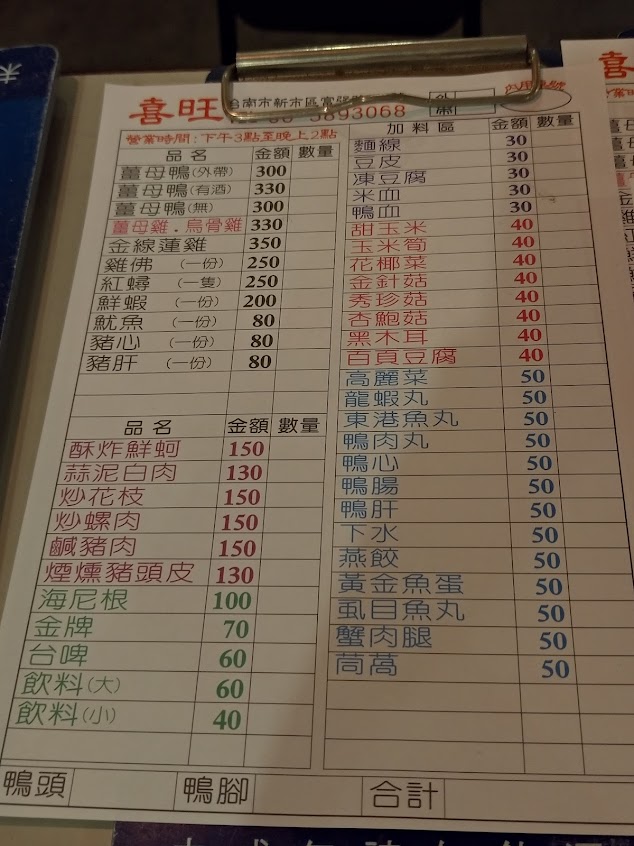 喜旺
台南市新市區富強
5893068
外帶
內用
營業時間:下午3點至晚上2點
品名 金額 數量
薑母鴨(外帶) 300
薑母鴨(有酒) 330
薑母鴨(無) 300
薑母雞.烏骨雞 330
金線蓮雞 350
雞佛 (一份) 250
紅蟳 (一隻) 250
鮮蝦 (一份) 200
魷魚 (一份) 80
豬心 (一份) 80
豬肝 (一份) 80
品名 金額 數量
酥炸鮮蚵 150
蒜泥白肉 130
炒花枝 150
炒螺肉 150
鹹豬肉 150
煙燻豬頭皮 130
海尼根 100
金牌 70
台啤 60
飲料(大) 60
飲料(小) 40
加料區 金額 數量
麵線 30
豆皮 30
凍豆腐 30
米血 30
鴨血 30
甜玉米 40
玉米筍 40
花椰菜 40
金針菇 40
秀珍菇 40
杏鮑菇 40
黑木耳 40
百頁豆腐 40
高麗菜 50
龍蝦丸 50
東港魚丸 50
鴨肉丸 50
鴨心 50
鴨腸 50
鴨肝 50
下水 50
燕餃 50
黃金魚蛋 50
虱目魚丸 50
蟹肉腿 50
茼萵 50
鴨頭 鴨腳 合計